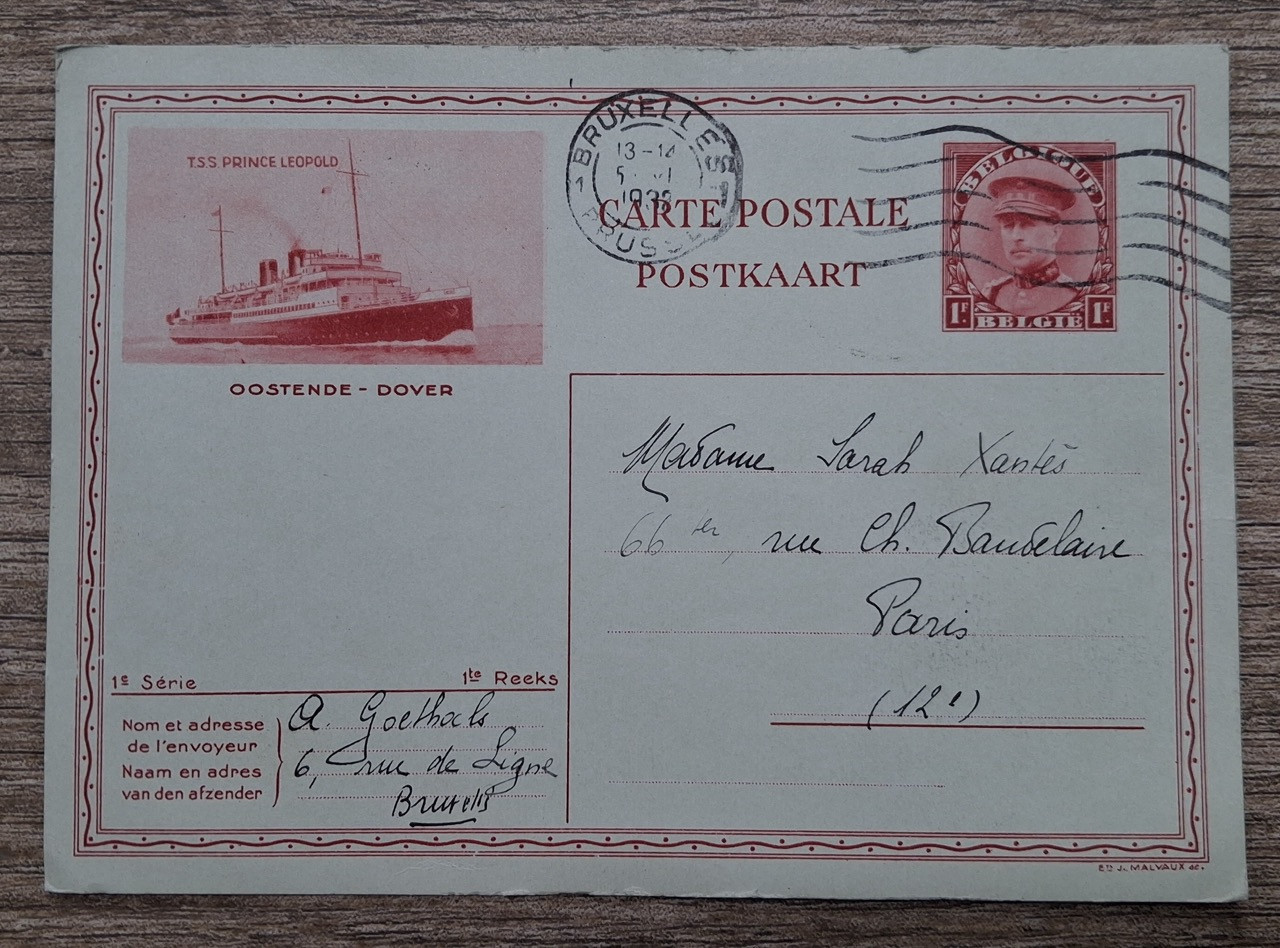 T.S.S. PRINCE LEOPOLD
OOSTENDE - DOVER
BRUXELLES
13-14
CARTE POSTALE
POSTKAART
BELGIQUE
1F. BELGIË 1F.
Madame Sarah Xantès
66 ter, rue Ch. Baudelaire
Paris
(12e)
1e Série 1te Reeks
Nom et adresse
de l'envoyeur
Naam en adres
van den afzender
A. Goethals
6, rue de Ligne
Bruxelles
Ets J. MALVAUX